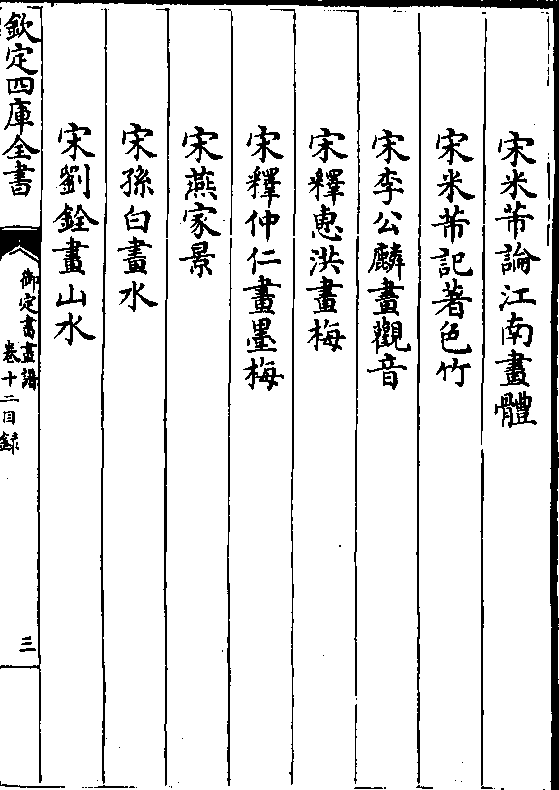 宋米芾論江南畫體
宋米芾記著色竹
宋李公麟畫觀音
宋釋惠洪畫梅
宋釋仲仁畫墨梅
宋燕家景
宋孫白畫水
宋劉銓畫山水
欽定四庫全書
御定書畫譜
卷十二目録
三